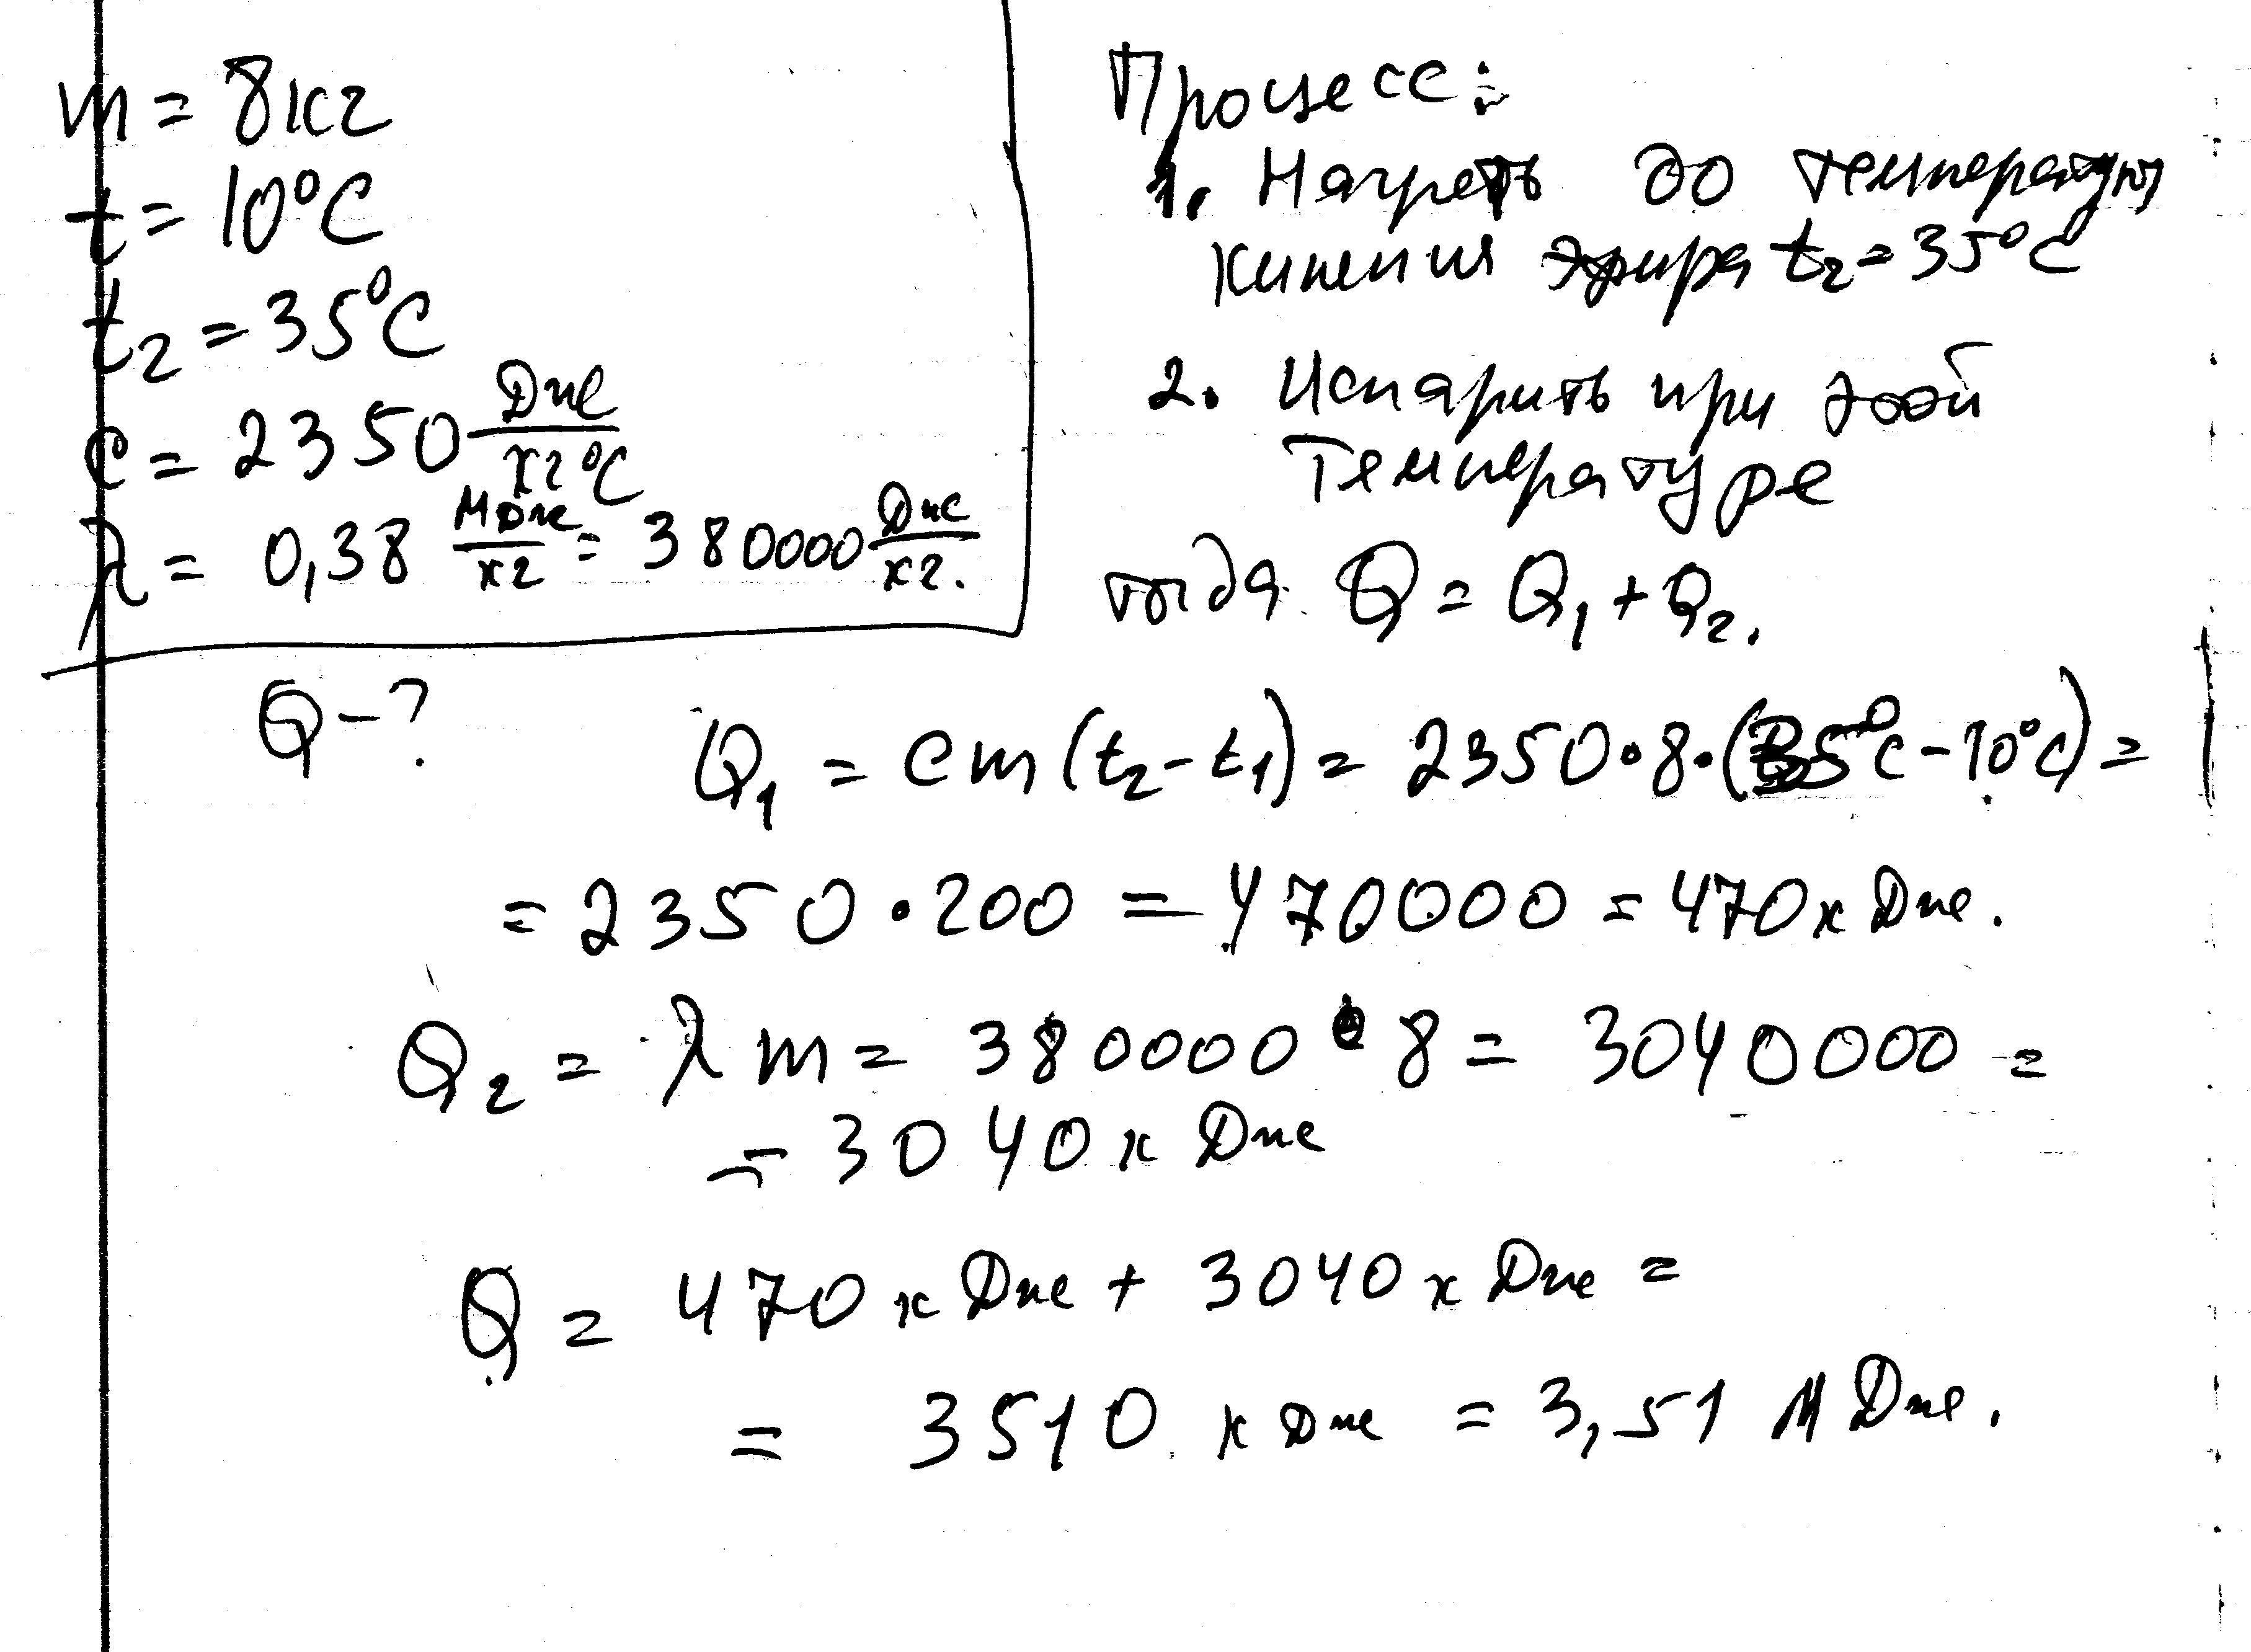 m = 8 кг
t = 10°C
t₂ = 35°C
c = 2350 Дж/кг°C
λ = 0,38 МДж/кг = 380000 Дж/кг.
Q - ?
Процесс:
1. Нагреть до температуры
кипения эфира t₂ = 35°C
2. Испарить при этой
температуре
тогда Q = Q₁ + Q₂.
Q₁ = cm(t₂ - t₁) = 2350 · 8 · (35°C - 10°C) =
= 2350 · 200 = 470000 = 470 кДж.
Q₂ = λm = 380000 · 8 = 3040000 =
= 3040 кДж
Q = 470 кДж + 3040 кДж =
= 3510 кДж = 3,51 МДж.